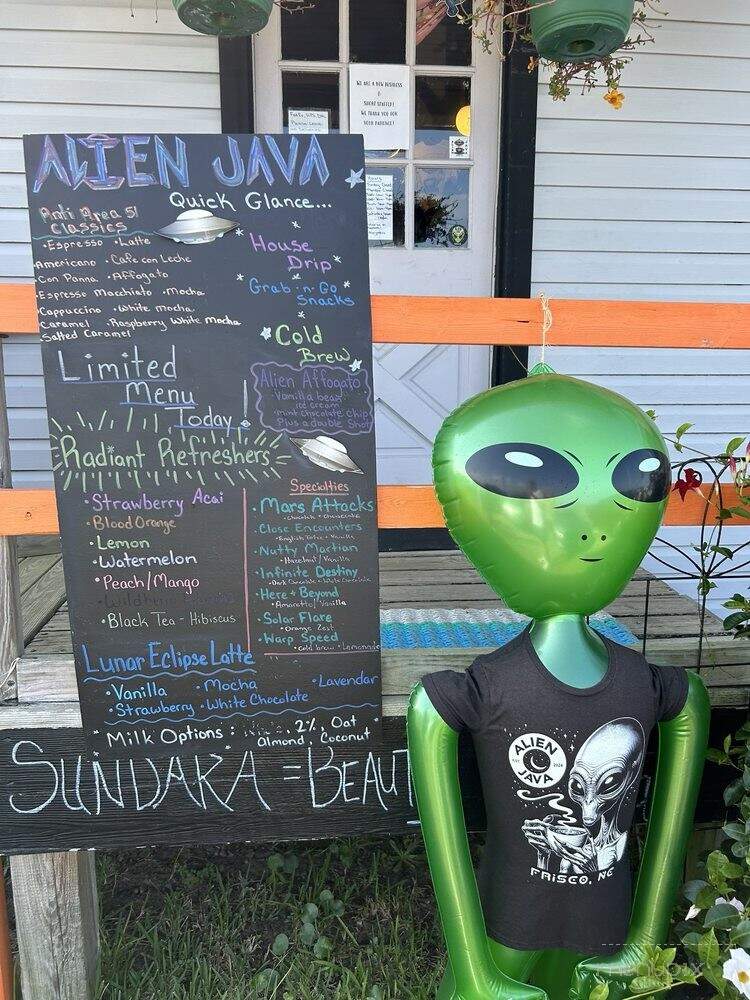 WE ARE A NEW BUSINESS
&
SHORT STAFFED!
WE THANK YOU FOR
YOUR PATIENCE!
ALIEN JAVA
Quick Glance...
Anti Area 51
Classics
• Espresso • Latte
Americano • Cafe con Leche
Con Panna • Affogato
• Espresso Macchiato • Mocha
• Cappuccino • White mocha
Caramel • Raspberry White mocha
Salted Caramel
House
Drip
Grab-n-Go
Snacks
Cold
Brew
Alien Affogato
• Vanilla bean
ice cream
• mint chocolate chip
Plus a double shot
Limited
Menu
Today!
Radiant Refreshers
• Strawberry Acai
• Blood Orange
• Lemon
• Watermelon
• Peach/Mango
• Black Tea - Hibiscus
Specialties
• Mars Attacks
• Chocolate + Cheesecake
Close Encounters
• English Toffee + Vanilla
Nutty Martian
• Hazelnut / Vanilla
• Infinite Destiny
• Dark Chocolate + White Chocolate
• Here + Beyond
• Amaretto / Vanilla
• Solar Flare
• Orange Zest
• Warp Speed
• Cold brew + Lemonade
Lunar Eclipse Latte
• Vanilla • Mocha • Lavendar
• Strawberry • White Chocolate
• Milk Options: 2%, Oat
Almond, Coconut
SUNDARA = BEAUT
ALIEN
EST 2024
JAVA
FRISCO, NC